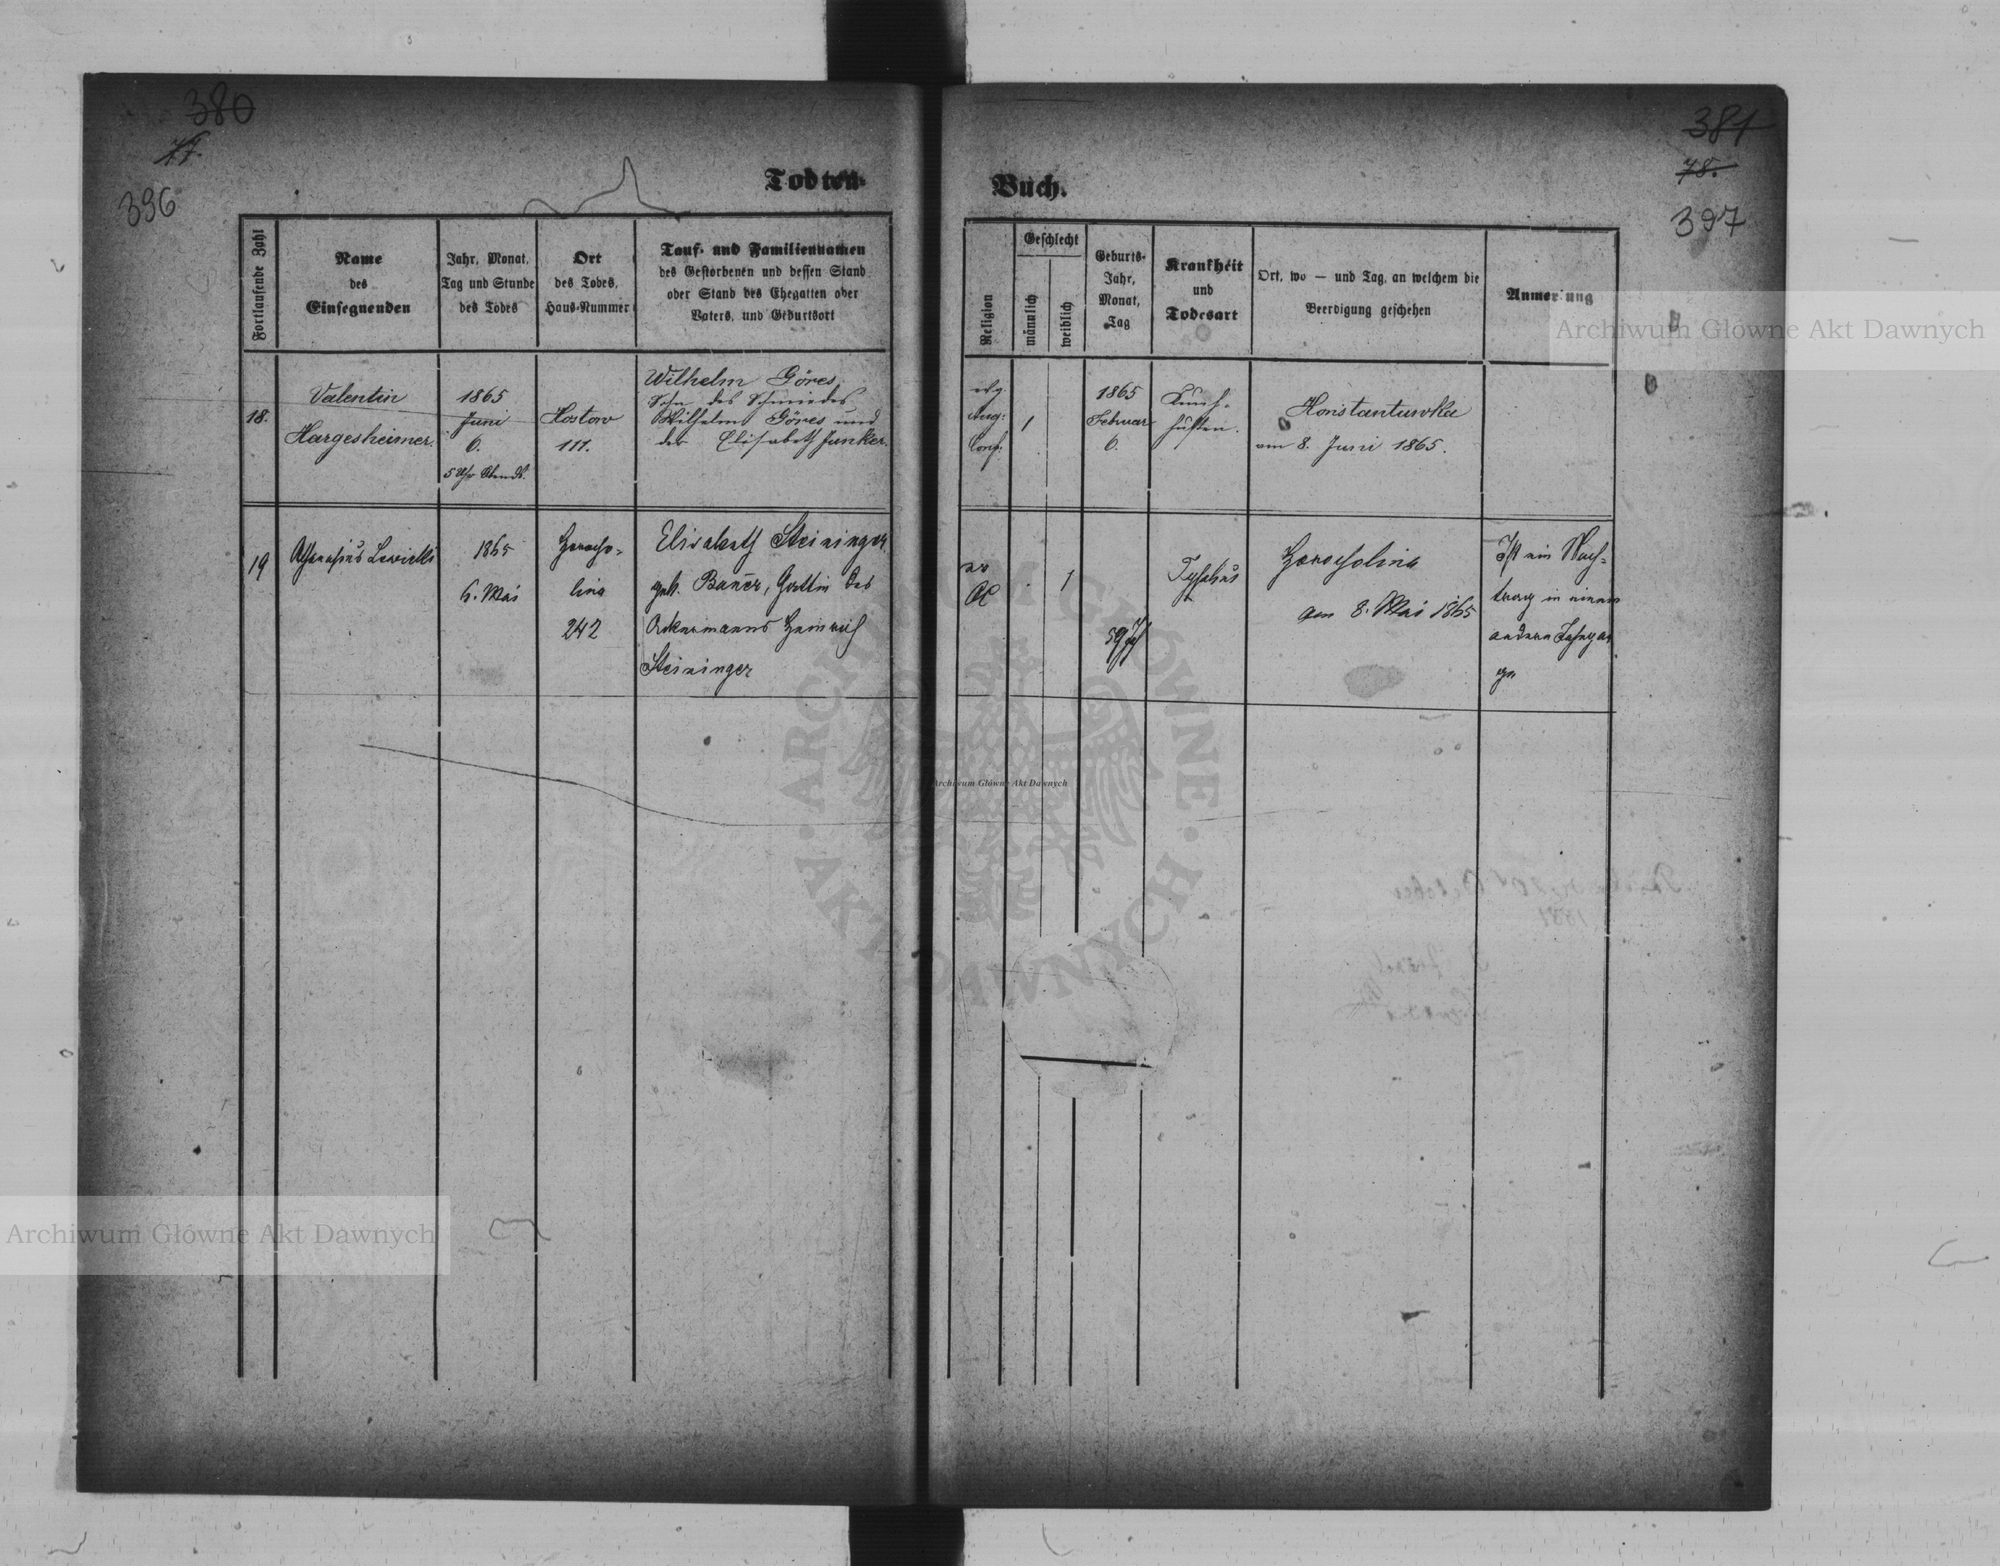 380
77.
396
Todten-
Fortlaufende Zahl
Name
des
Einsegnenden
Jahr, Monat,
Tag und Stunde
des Todes
Ort
des Todes,
Haus-Nummer
Tauf- und Familiennamen
des Gestorbenen und dessen Stand
oder Stand des Ehegatten oder
Vaters, und Geburtsort
18.
Valentin
Hargesheimer.
1865
Juni
6.
5 Uhr Abends.
117.
Wilhelm Göres,
Sohn des Schmiedes
Wilhelm Göres und
der Elisabeth Junker.
19
1865
6. Mai
Harocho-
lina
242
Elisabeth Steininger
geb. Bauer, Gattin des
Ackermanns Heinrich
Steininger
381
78.
397
Buch.
Religion
Geschlecht
männlich
weiblich
Geburts-
Jahr,
Monat,
Tag
Krankheit
und
Todesart
Ort, wo — und Tag, an welchem die
Beerdigung geschehen
Anmerkung
evg.
Aug:
Conf.
1
1865
Februar
6.
husten.
Konstantuvka
am 8. Juni 1865.
AC
1
59
Typhus
Harocholina
am 8. Mai 1865
Ist ein Nach-
trag in einem
andern Jahrgan
ge
Archiwum Główne Akt Dawnych
Archiwum Główne Akt Dawnych
Archiwum Główne Akt Dawnych
ARCHIWUM GŁÓWNE AKT DAWNYCH